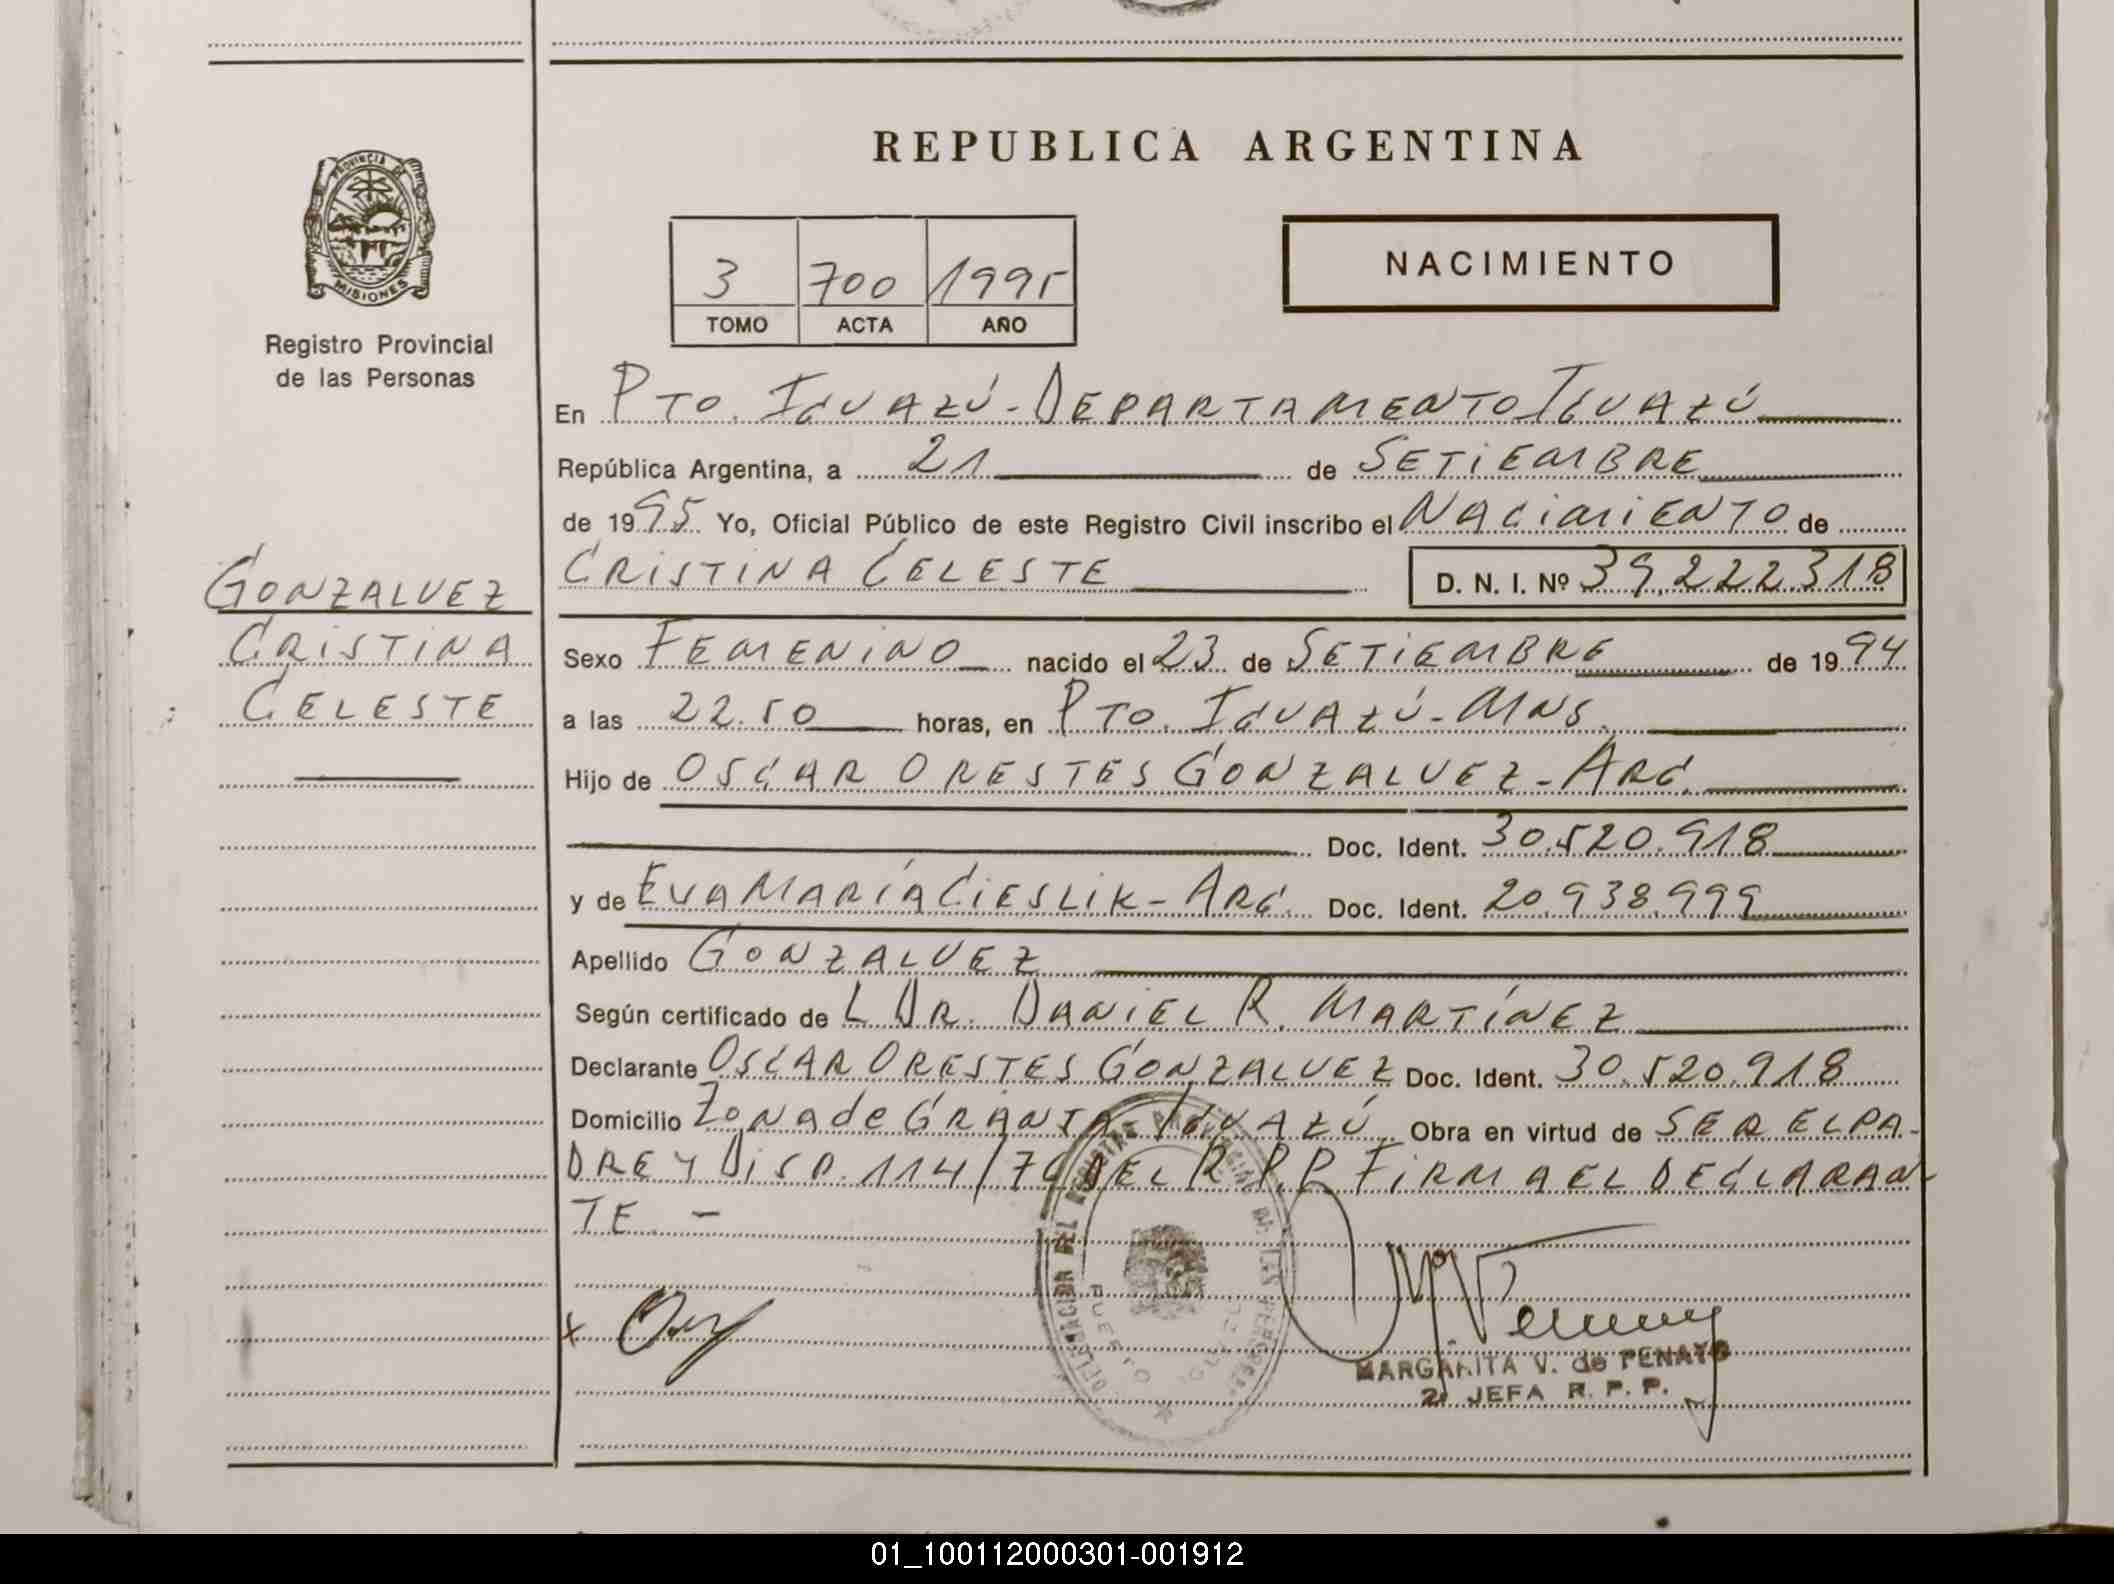 REPUBLICA ARGENTINA
PROVINCIA DE
MISIONES
Registro Provincial
de las Personas
NACIMIENTO
3 700 1995
TOMO ACTA AÑO
En Pto. Iguazú - Departamento Iguazú
República Argentina, a 21 de Setiembre
de 1995 Yo, Oficial Público de este Registro Civil inscribo el Nacimiento de
Gonzalvez
Cristina
Celeste
Cristina Celeste D. N. I. Nº 39.222.318
Sexo Femenino nacido el 23 de Setiembre de 1994
a las 22.50 horas, en Pto. Iguazú - Mns.
Hijo de Oscar Orestes Gonzalvez - Arg.
Doc. Ident. 30.520.918
y de Eva María Cieslik - Arg. Doc. Ident. 20.938.999
Apellido Gonzalvez
Según certificado de L Dr. Daniel R. Martínez
Declarante Oscar Orestes Gonzalvez Doc. Ident. 30.520.918
Domicilio Zona de Granja Iguazú Obra en virtud de ser el pa-
dre y Disp. 114/76 del R.P.P. Firma el declaran-
te. -
DELEGACION DEL REGISTRO PROVINCIAL DE LAS PERSONAS
PUERTO IGUAZU
x
MARGARITA V. de PENAYO
2ª JEFA R. P. P.
01_100112000301-001912